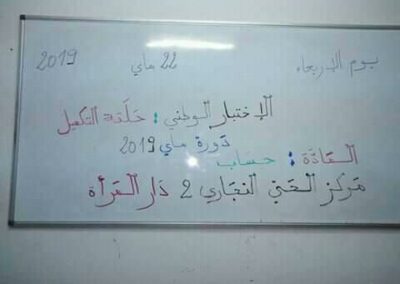 يوم الاربعاء 22 ماي 2019
الإختبار الوطني : حلقة التكميل
دورة ماي 2019
المادة : حساب
مركز الحي النجاري 2 دار المرأة